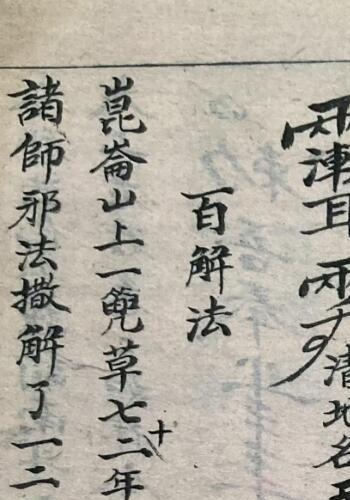 清地名
百解法
崑崙山上一兜草七十二年
諸師邪法撒解了一二